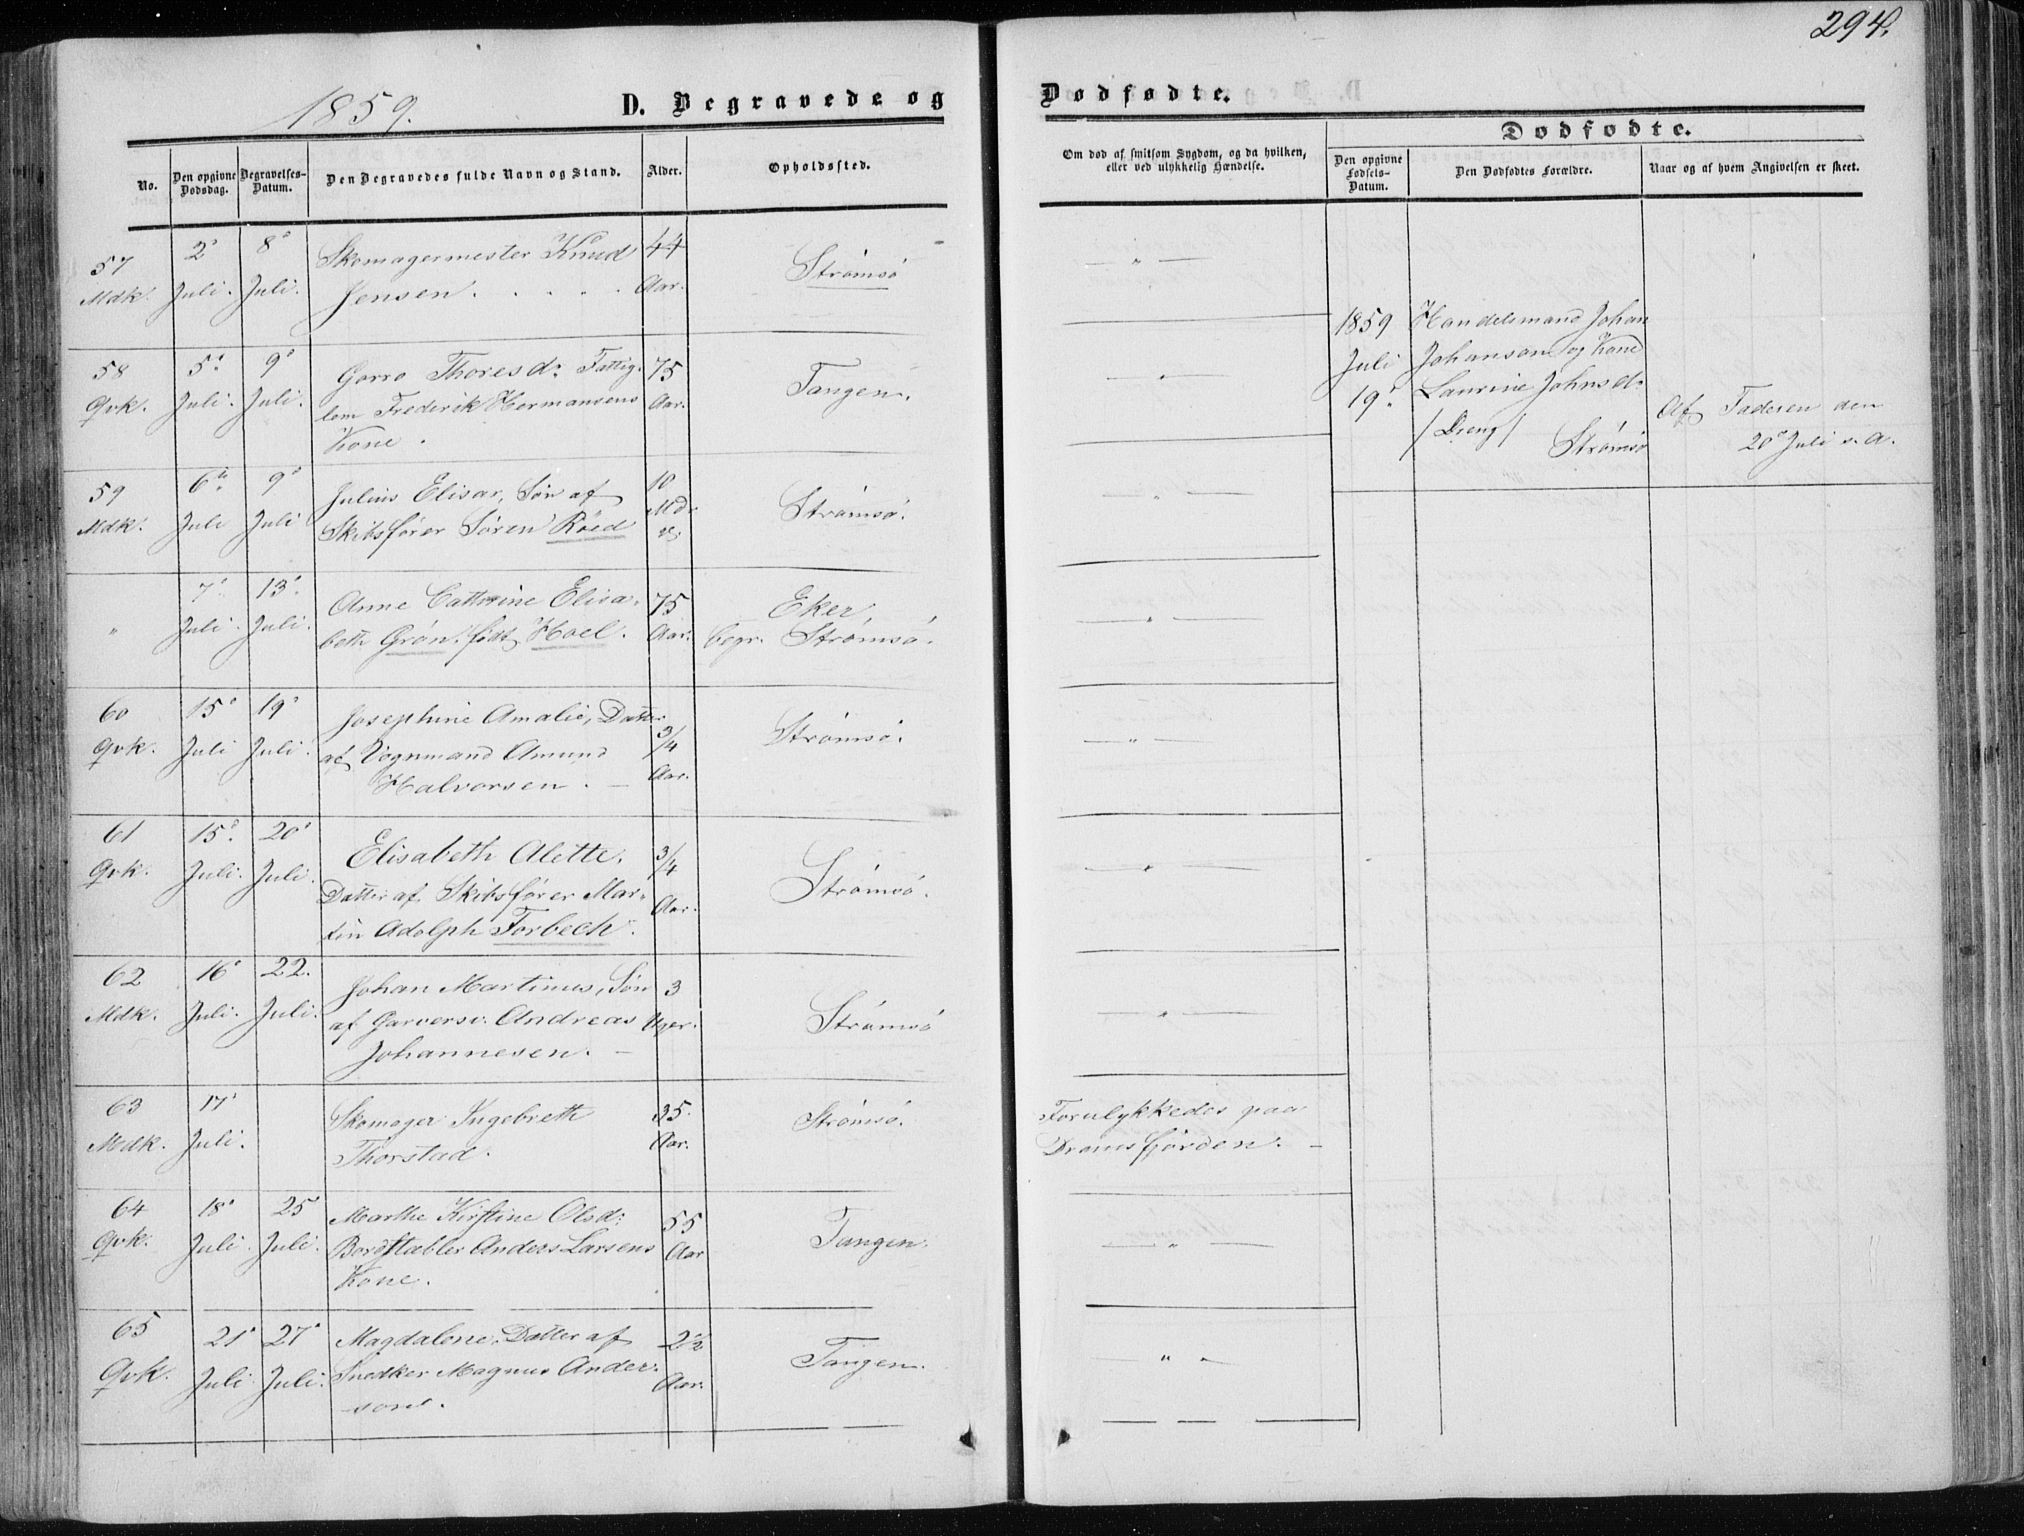 294.
1859.
D. Begravede og
Dødfødte.
No.
Den opgivne Dødsdag.
Begravelses-Datum.
Den Begravedes fulde Navn og Stand.
Alder.
Opholdssted.
Om død af smitsom Sygdom, og da hvilken,
eller ved ulykkelig Hændelse.
Dødfødte.
Den opgivne Fødsels-Datum.
Den Dødfødtes Forældre.
Naar og af hvem Angivelsen er skeet.
57 2' 8' Skomagermester Knud 44 Strømsø — " —
Mdk. Juli. Juli. Jensen. . . . . Aar.
58 5' 9' Gorro Thoresd: Fattig- 75 Tangen. — " —
Qvk. Juli. Juli. lem Frederik Hermansens Aar.
Kone.
59 6' 9' Julius Elisar, Søn af 10 Strømsø. — " —
Mdk. Juli Juli Skibsfører Søren Röed Md.
" 7' 13' Anne Cathrine Elisa- 75 Eker, — " —
Juli. Juli. beth Grøn, født Hoel. Aar. begr. Strømsø.
60 15' 19' Josephine Amalie, Datter 3/4 Strømsø. — " —
Qvk. Juli Juli. af Vognmand Amund Aar.
Halvorsen. —
61 15' 20' Elisabeth Alette, 3/4 Strømsø. — " —
Qvk. Juli. Juli. Datter af Skibsfører Mar- Aar.
tin Adolph Forbech.
62 16' 22. Johan Martinus, Søn 3 Strømsø — " —
Mdk. Juli. Juli. af Garversv. Andreas Uger.
Johannesen. —
63 17' Skomager Ingebreth 35 Strømsø. Forulykkedes paa
Mdk. Juli. Thorstad. Aar. Dramsfjorden. —
64 18' 25' Marthe Kirstine Olsd: 55 Tangen. — " —
Qvk. Juli. Juli. Bordstabler Anders Larsens Aar
Kone.
65 21' 27' Magdalene, Datter af 2½ Tangen. — " —
Qvk. Juli Juli. Snedker Magnus Ander- Aar.
sons.
1859 Handelsmand Johan
Juli Johanson og Kone
19' Laurine Johnsd:
/Dreng/ Strømsø
Af Faderen den
20' Juli s. a.